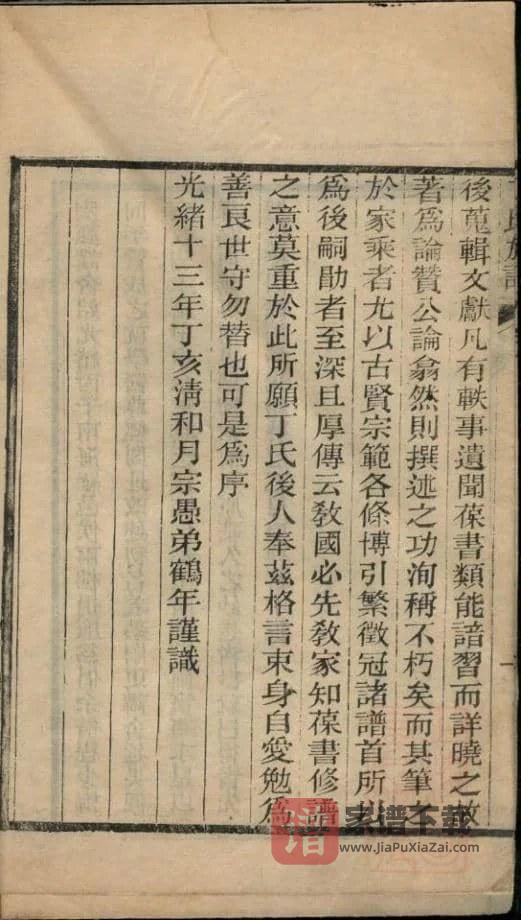 後蒐輯文獻凡有軼事遺聞葆書類能諳習而詳曉之故
著爲論贊公論翕然則撰述之功洵稱不朽矣而其筆之
於家乘者尤以古賢宗範各條博引繁徵冠諸譜首所以
爲後嗣勖者至深且厚傳云敎國必先敎家知葆書修譜
之意莫重於此所願丁氏後人奉茲格言束身自愛勉爲
善良世守勿替也可是爲序
光緒十三年丁亥淸和月宗愚弟鶴年謹識
譜
家谱下载
www.JiaPuXiaZai.com